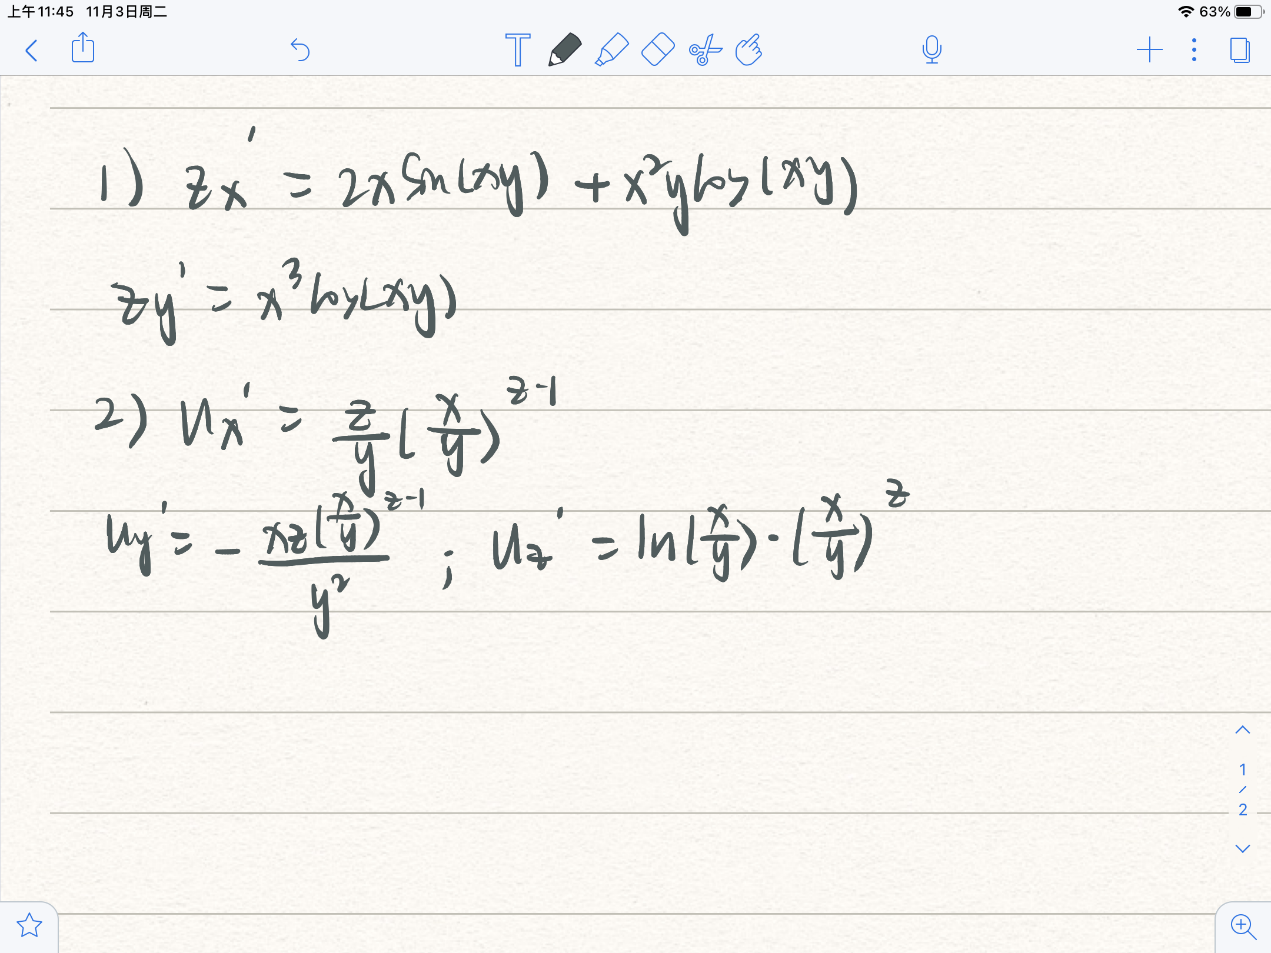 上午11:45 11月3日周二 63%
T
1) zx' = 2x sin(xy) + x²y cos(xy)
zy' = x³ cos(xy)
2) ux' = z/y (x/y)^(z-1)
uy' = - xz(x/y)^(z-1) / y² ; uz' = ln(x/y)·(x/y)^z
1
/
2